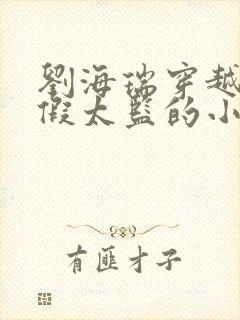 劉海瑞穿越
假太監的小
有匪才子